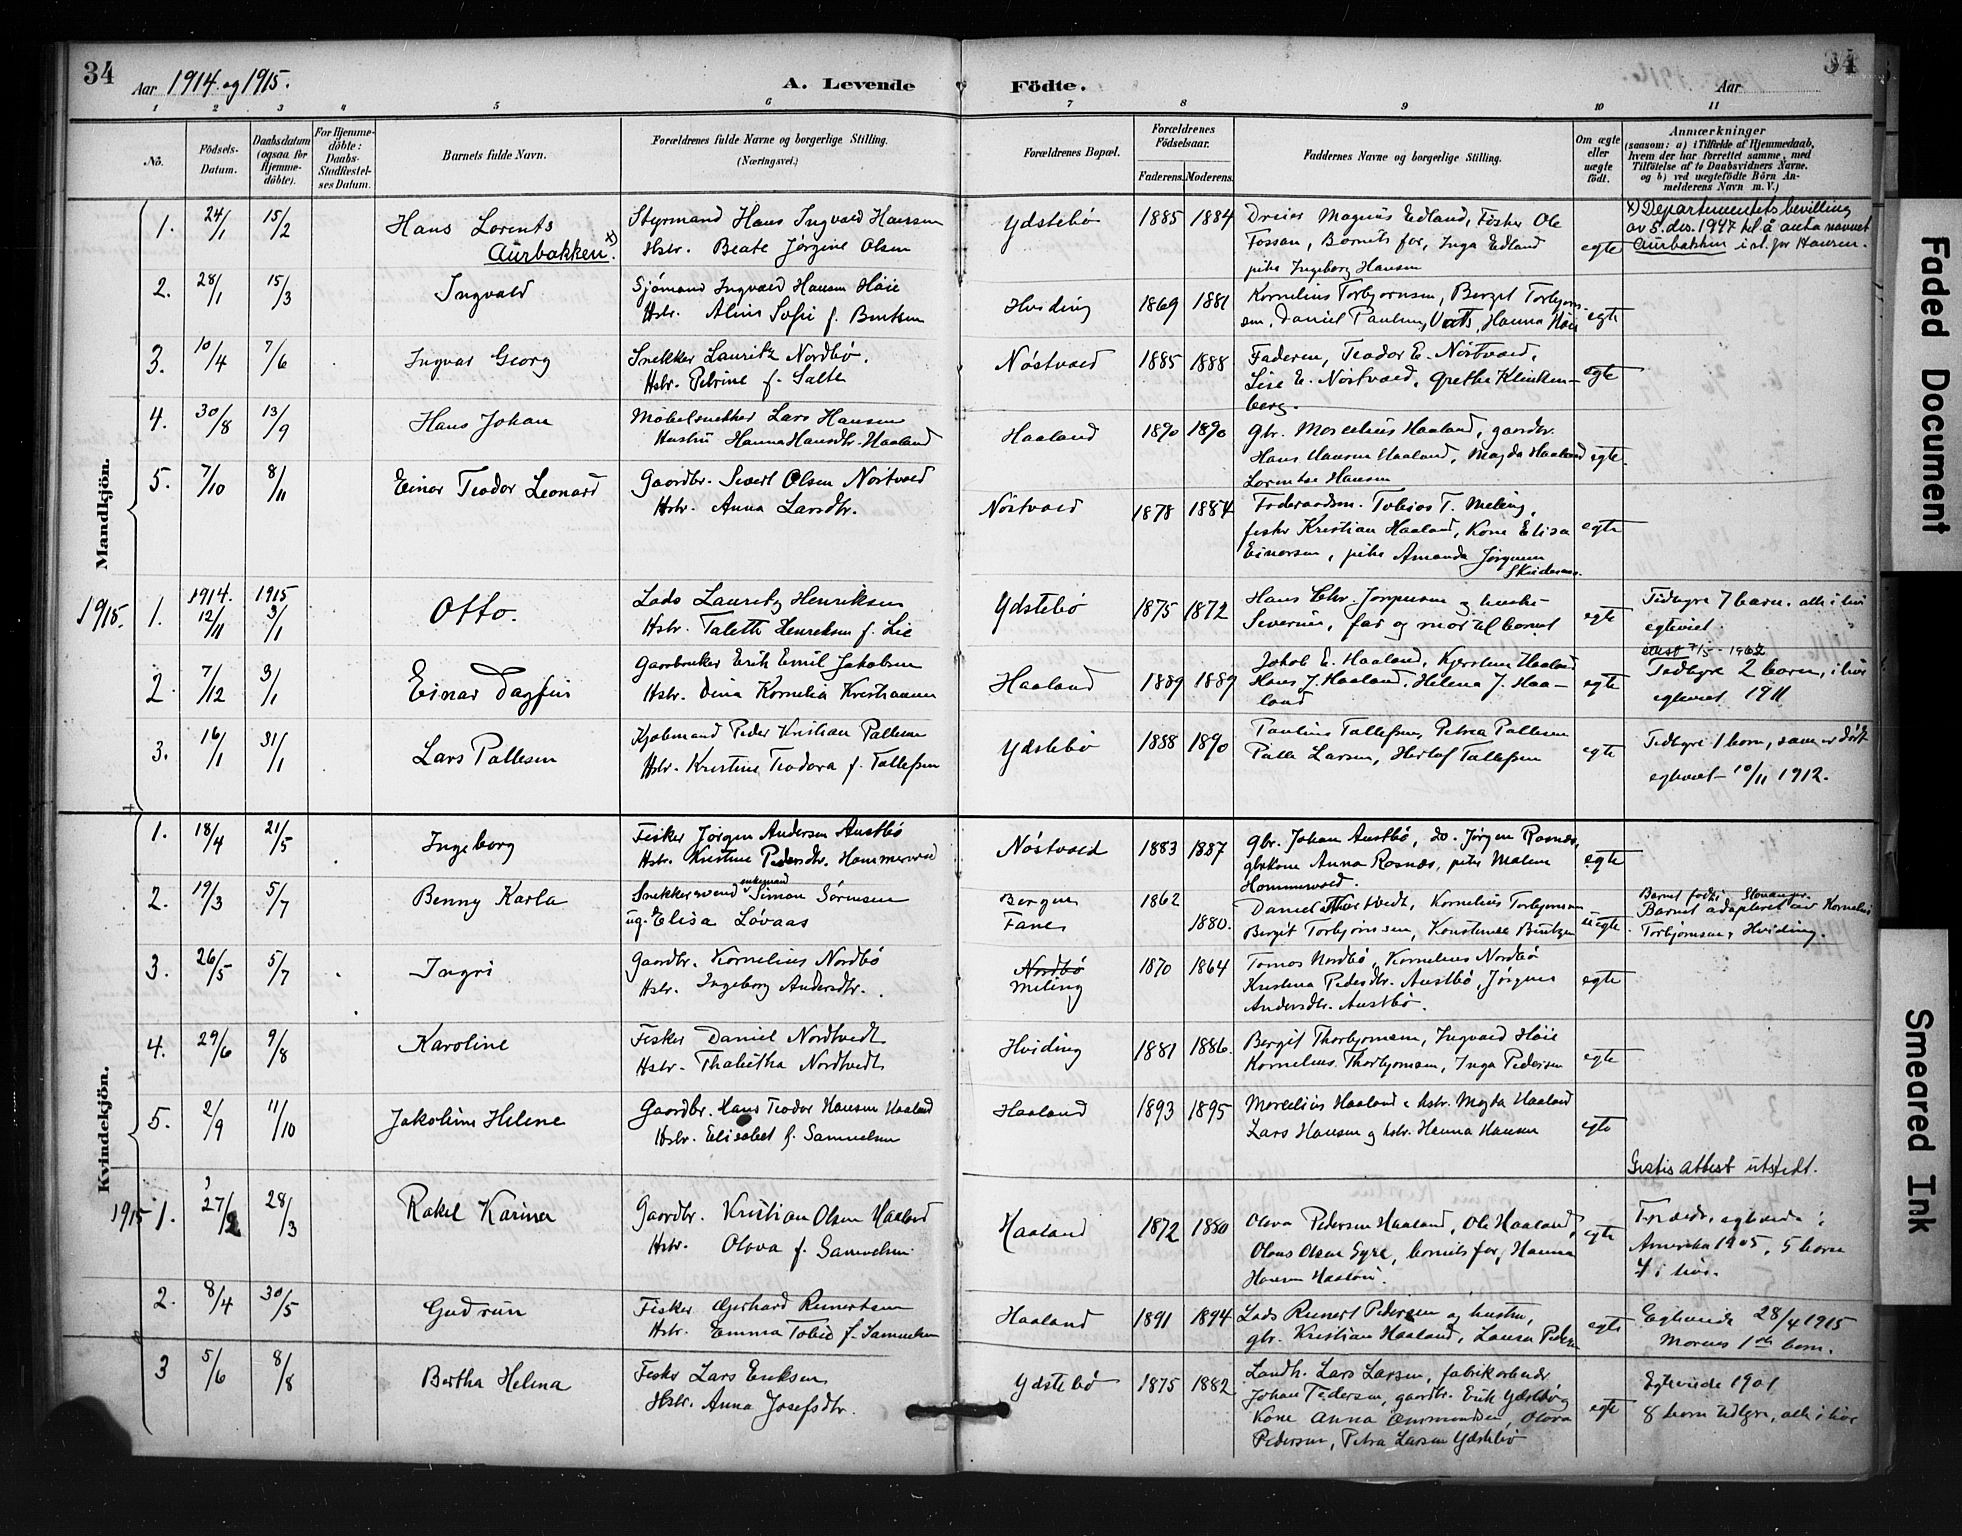 34
Aar 1914 og 1915.
A. Levende Födte.
Aar
34
1 2 3 4 5 6 7 8 9 10 11
No.
Födsels-Datum.
Daabsdatum (ogsaa for Hjemmedöbte).
For Hjemmedöbte: Daabs-Stadfæstelses Datum.
Barnets fulde Navn.
Forældrenes fulde Navne og borgerlige Stilling. (Næringsvei.)
Forældrenes Bopæl.
Forældrenes Födselsaar.
Faderens. Moderens.
Faddernes Navne og borgerlige Stilling.
Om ægte eller uægte født.
Anmærkninger
(saasom: a) i Tilfælde af Hjemmedaab,
hvem der har forrettet samme, med
Tilföielse af to Daabsvidners Navne.
og b) ved uægtefödte Börn An-
melderens Navn m. V.)
Mandkjön.
1. 24/1 15/2 Hans Lorents Aurbakken x)
Styrmand Hans Ingvald Hansen
Hstr. Beate Jørgine Olsen
Ydstebø 1885 1884
Dreier Magnus Edland, Fisker Ole
Fossan, Barnets far, Inga Edland
pike Ingeborg Hansen
egte
x) Departementets bevilling
av 5. des. 1947 til å anta navnet
Aurbakken i st. for Hansen.
2. 28/1 15/3 Ingvald
Sjømand Ingvald Hansen Høie
Hstr. Aline Sofie f. Bentsen
Hviding 1869 1881
Kornelius Torbjørnsen, Bergit Torbjørn-
sen, Daniel Paulsen, Vatts, Hanna Høie
egte
3. 10/4 7/6 Ingvar Georg
Snekker Lauritz Nordbø.
Hstr. Petrine f. Salte
Nøstvold 1885 1888
Faderen, Teodor E. Nøstvold,
Lise E. Nøstvold, Grethe Klinken-
berg.
egte
4. 30/8 13/9 Hans Johan
Møbelsnekker Lars Hansen
Hustru Hanna Hansdtr. Haaland
Haaland 1890 1890
Gbr. Morcelius Haaland, gaardbr.
Hans Hansen Haaland, Magda Haaland
Lorentse Hansen
egte
5. 7/10 8/11 Einar Teodor Leonard
Gaardbr. Sivert Olsen Nøstvold
Hstr. Anna Larsdtr.
Nøstvold 1878 1884
Foderaadsm. Tobias T. Meling,
fisker Kristian Haaland, Kone Elisa
Einarsen, pike Amanda Jørgensen
egte
1915.
1. 1914. 12/11 1915 3/1 Otto.
Lods Lauritz Henriksen
Hstr. Taletta Henriksen f. Lie
Ydstebø 1875 1872
Hans Chr. Jørgensen og hustru
Severine, far og mor til barnet
egte
Tidligre 7 barn, alle i live
egteviet
2. 7/12 3/1 Einar Dagfin
Gaardbruker Erik Emil Jakobsen
Hstr. Dina Kornelia Kristiansen
Haaland 1889 1889
Jakob E. Haaland, Kjersten Haaland
Hans J. Haaland, Helena J. Haa-
land
egte
attest 7/5 - 1962
Tidligre 2 barn, i live
egteviet 1911
3. 16/1 31/1 Lars Pallesen
Kjøbmand Peder Kristian Pallesen
Hstr. Kristine Teodora f. Tallefsen
Ydstebø 1888 1890
Pauline Tallefsen, Petrea Pallesen
Palle Larsen, Herlof Tallefsen
egte
Tidligre 1 barn, som er død
egteviet 10/11 1912.
Kvindekjön.
1. 18/4 21/5 Ingeborg
Fisker Jørgen Andersen Austbø
Hstr. Kristine Pedersdtr. Hammersvold
Nøstvold 1883 1887
Gbr. Johan Austbø, do. Jørgen Rosnæs,
gbrkone Anna Rosnæs, pike Malene
Hommersvold.
egte
2. 19/3 5/7 Benny Karla
Snekkersvend enkemand Simon Sørensen
ug. Elisa Løvaas
Bergen
Fane
1862 1880.
Daniel Nordtvedt, Kornelius Torbjørnsen
Bergit Torbjørnsen, Konstanse Bentsen
uegte
Barnet født i Stavanger.
Barnet adopteret av Kornelius
Torbjørnsen, Hviding.
3. 26/5 5/7 Ingri
Gaardbr. Kornelius Nordbø
Hstr. Ingeborg Andersdtr.
Nordbø
Meling
1870 1864
Tomas Nordbø, Kornelius Nordbø
Kristina Pedersdtr. Austbø, Jørgine
Andersdtr. Austbø.
egte
4. 29/6 9/8 Karoline
Fisker Daniel Nordtvedt
Hstr. Thabitha Nordtvedt
Hviding 1881 1886.
Bergit Thorbjørnsen, Ingvald Høie
Kornelius Thorbjørnsen, Inga Pedersen
egte
5. 2/9 11/10 Jakobine Helene
Gaardbr. Hans Teodor Hansen Haaland
Hstr. Elisabet f. Samuelsen
Haaland 1893 1895
Morcelius Haaland & hstr. Magda Haaland
Lars Hansen og hstr. Hanna Hansen
egte
Gratis attest utstedt.
1915
1. 27/2 28/3 Rakel Karina
Gaardbr. Kristian Olsen Haaland
Hstr. Olava f. Samuelsen
Haaland 1872 1880
Olava Pedersen Haaland, Ole Haaland,
Olaus Olsen Eyre, barnets far, Hanna
Hansen Haaland.
egte
Foræld. egteviede i
Amerika 1905, 5 barn
4 i live.
2. 8/4 30/5 Gudrun
Fisker Gerhard Reinertsen
Hstr. Emma Tobie f. Samuelsen
Haaland 1891 1894
Lods Reinert Pedersen og hustru,
gbr. Kristian Haaland, Laura Pedersen
egte
Egteviede 28/4 1915
Morens 1ste barn.
3 5/6 8/8 Bertha Helena
Fisker Lars Eriksen
Hstr. Anna Josefsdtr.
Ydstebø 1875 1882
Landh. Lars Larsen, fabrikarbeider
Johan Pedersen, gaardbr. Erik Ydstebø,
Kone Anna Aanmundsen, Olava
Pedersen, Petra Larsen Ydstebø
egte
Egteviede 1901
8 barn tidlgre, alle i live
Faded Document
Smeared Ink